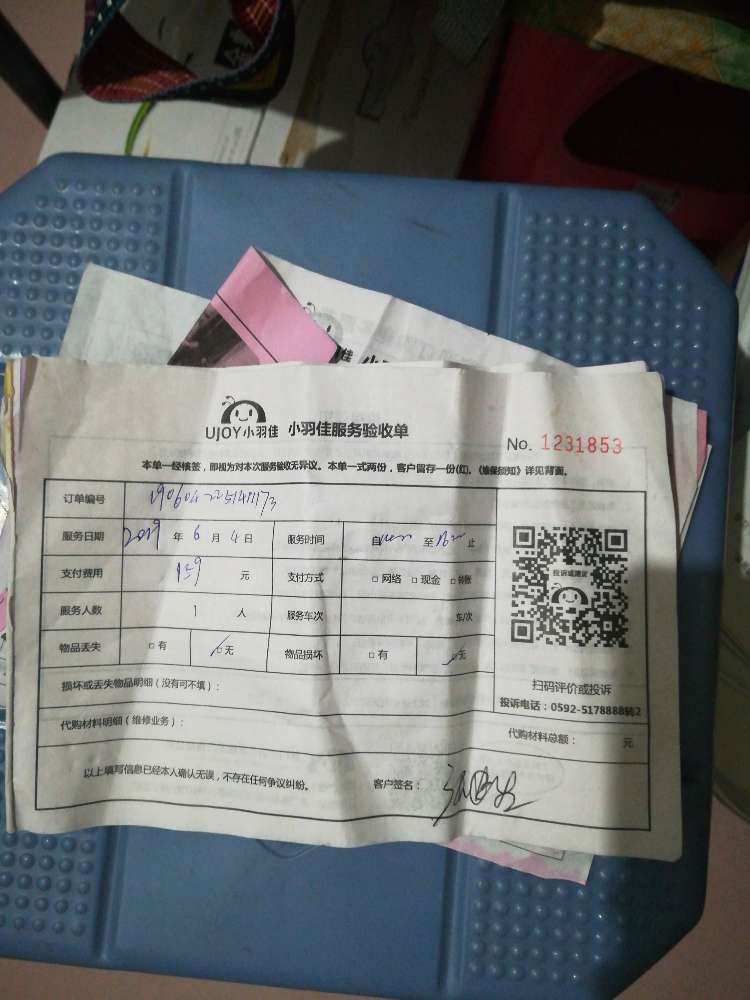 UJOY小羽佳 小羽佳服务验收单
No. 1231853
本单一经核签，即视为对本次服务验收无异议。本单一式两份，客户留存一份(红)。《维保须知》详见背面。
订单编号
服务日期 2019 年 6 月 4 日 服务时间 自 至 止
支付费用 159 元 支付方式 □ 网络 □ 现金 □ 转账
服务人数 1 人 服务车次 车/次
物品丢失 □ 有 □ 无 物品损坏 □ 有 □ 无
损坏或丢失物品明细（没有可不填）：
代购材料明细（维修业务）：
以上填写信息已经本人确认无误，不存在任何争议纠纷。 客户签名：
投诉或建议
扫码评价或投诉
投诉电话：0592-5178888转2
代购材料总额： 元